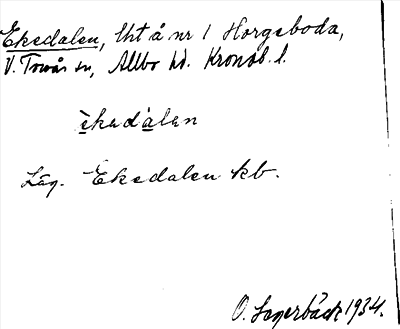 Ekedalen, lht å nr 1 Horgeboda,
V. Torsås sn, Allbo hd. Kronob. l.
èkedàlen
Läg. Ekedalen kb.
O. Lagerbäck 1934.